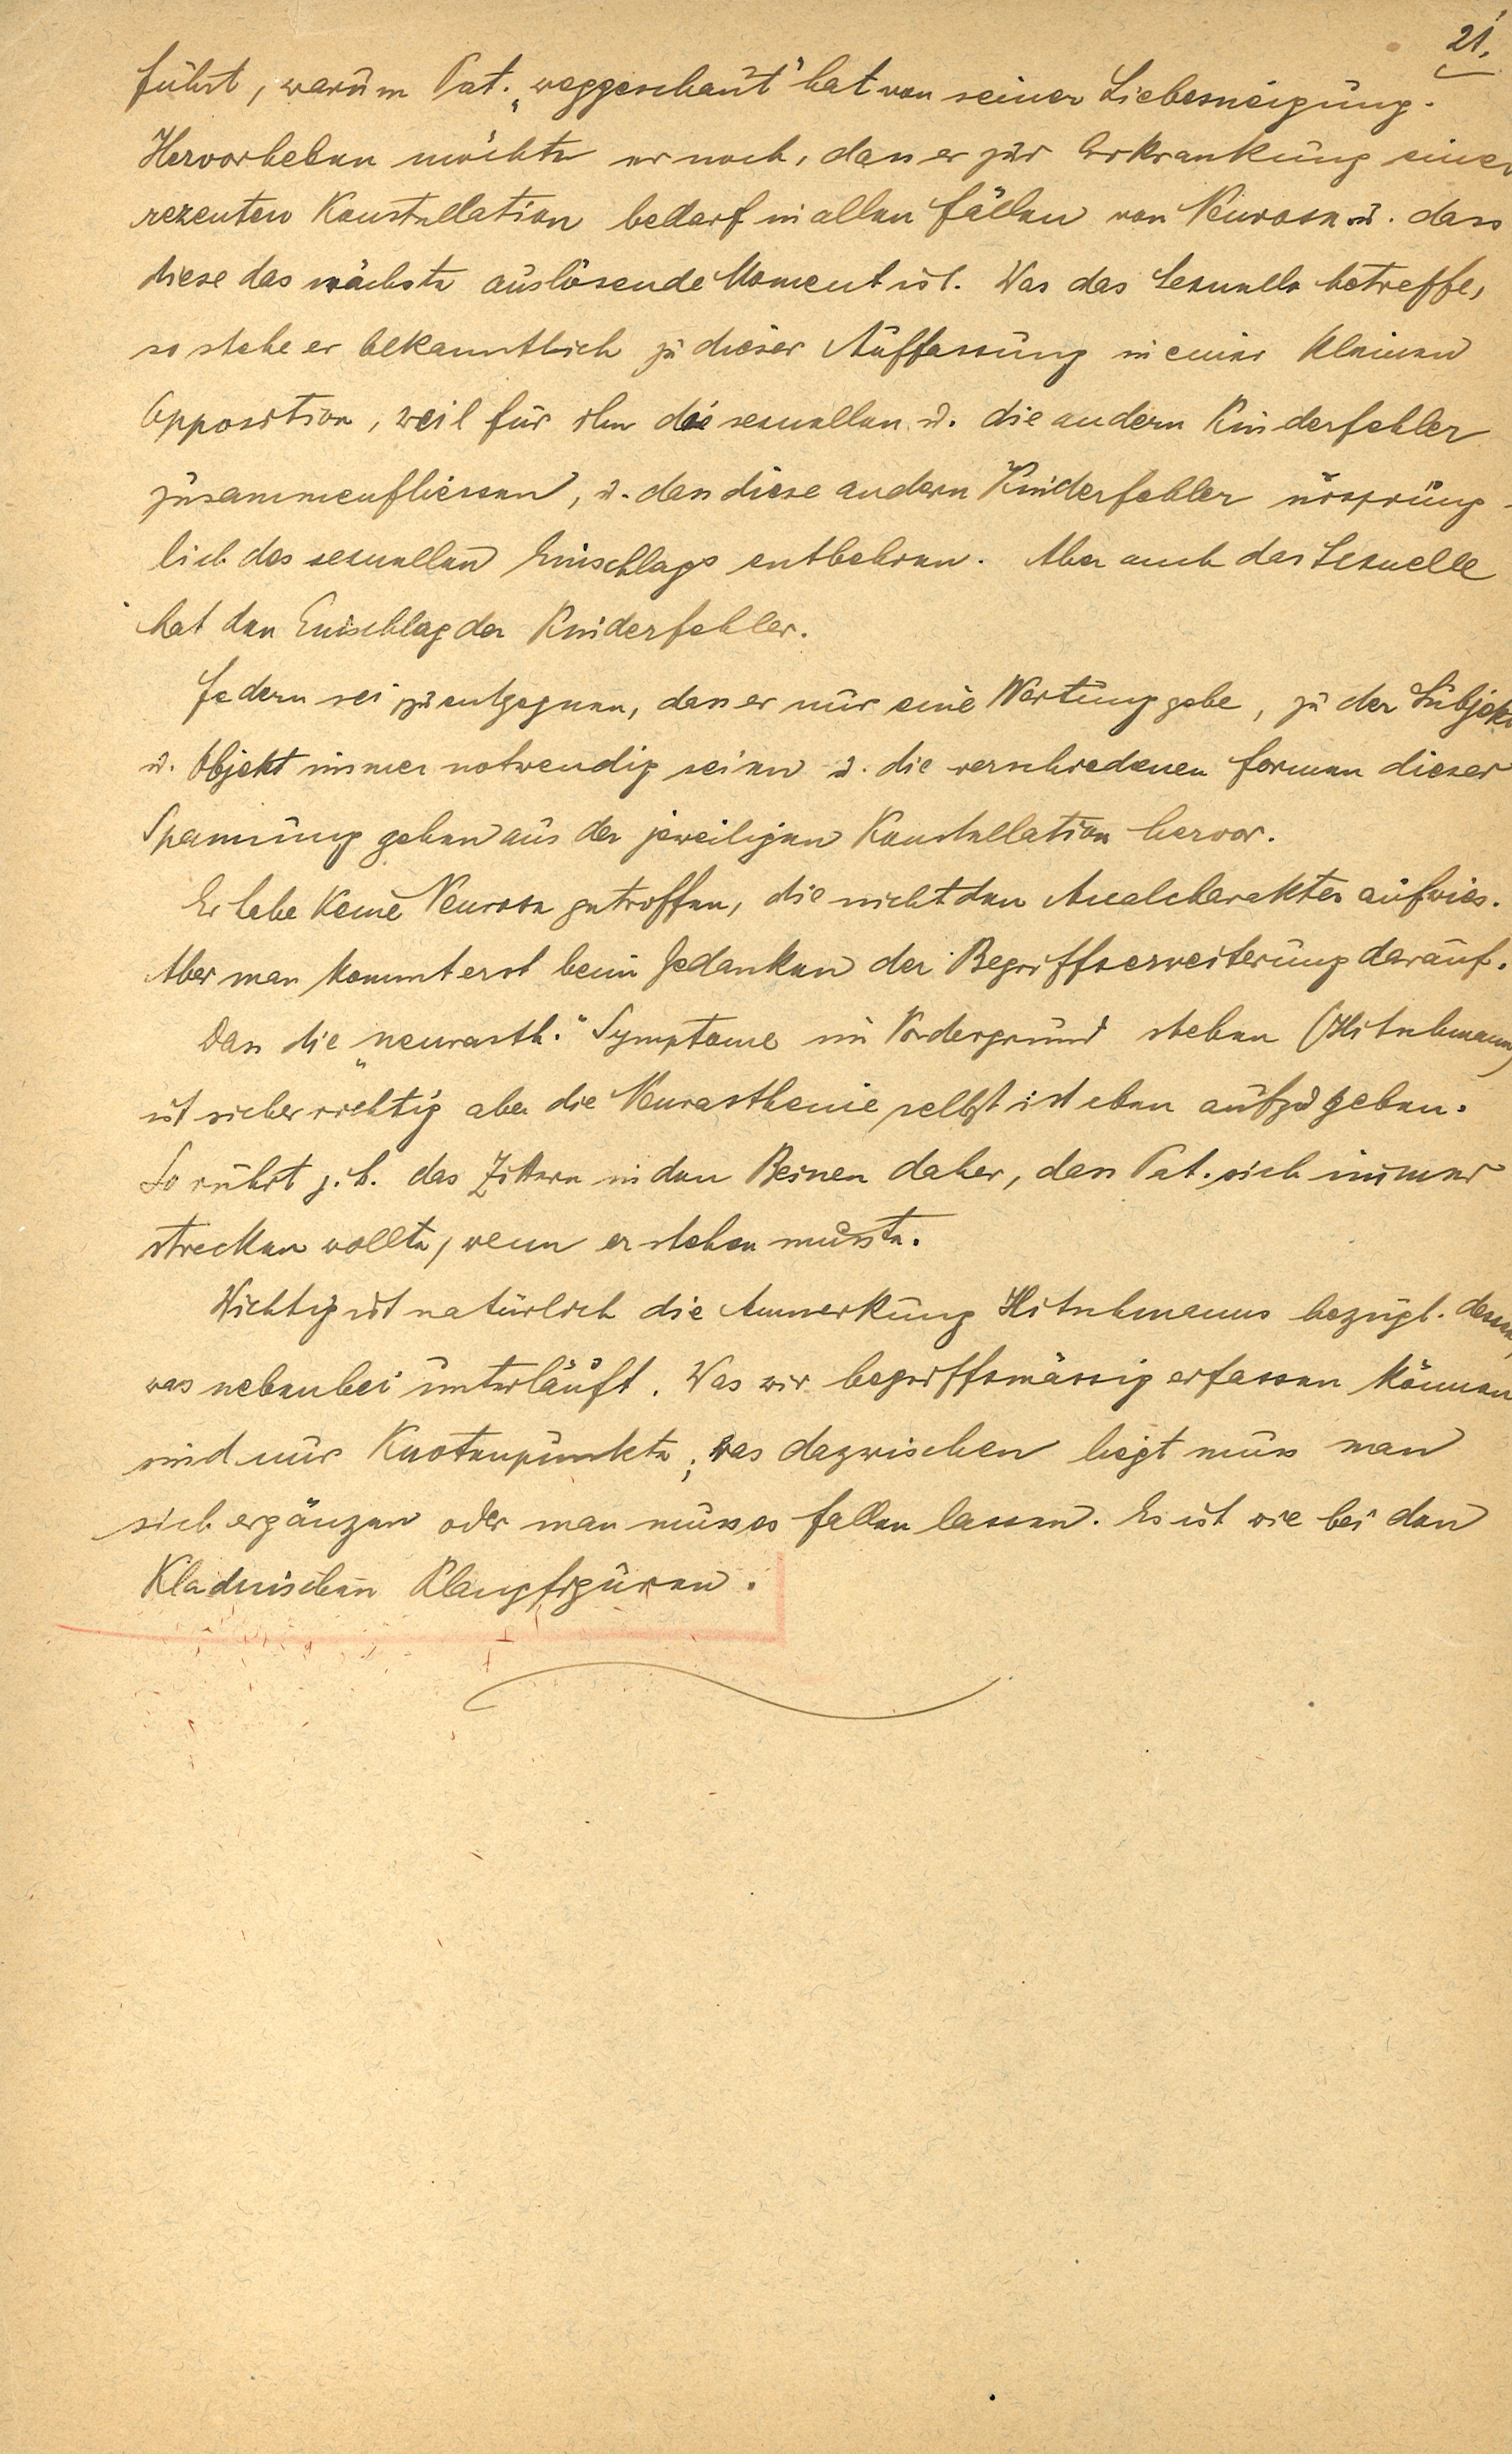 21.
führt, warum Pat. „weggeschaut“ hat von seiner Liebesneigung.
Hervorheben möchte er noch, dass er zur Erkrankung einer
rezenten Konstellation bedarf in allen Fällen von Neurose u. dass
diese das nächste auslösende Moment ist. Was das Sexuelle betreffe,
so stehe er bekanntlich zu dieser Auffassung in einer kleinen
Opposition, weil für ihn die sexuellen u. die andern Kinderfehler
zusammenfliessen, u. dass diese andern Kinderfehler ursprüng-
lich des sexuellen Einschlags entbehren. Aber auch das Sexuelle
hat den Einschlag der Kinderfehler.
Federn sei zu entgegnen, dass er nur eine Wertung gebe, zu der Subjekt
u. Objekt immer notwendig seien u. die verschiedenen Formen dieser
Spannung gehen aus der jeweiligen Konstellation hervor.
Er habe keine Neurose getroffen, die nicht den Analcharakter aufwies.
Aber man kommt erst beim Gedanken der Begriffserweiterung darauf.
Dass die „neurasth.“ Symptome im Vordergrund stehen (Hitschmann)
ist sicher richtig aber die Neurasthenie selbst ist eben aufzugeben.
So rührt z. B. das Zittern in den Beinen daher, dass Pat. sich immer
strecken wollte, wenn er stehen musste.
Wichtig ist natürlich die Anmerkung Hitschmanns bezügl. dessen,
was nebenbei unterläuft. Was wir begriffsmässig erfassen können
sind nur Knotenpunkte; was dazwischen liegt muss man
sich ergänzen oder man muss es fallen lassen. Es ist wie bei den
Kladnischen Klangfiguren.